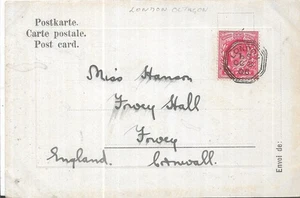 LONDON
Postkarte.
Carte postale.
Post card.
Miss Hanson
Fowey Hall
Fowey
England. Cornwall.
Envoi de: